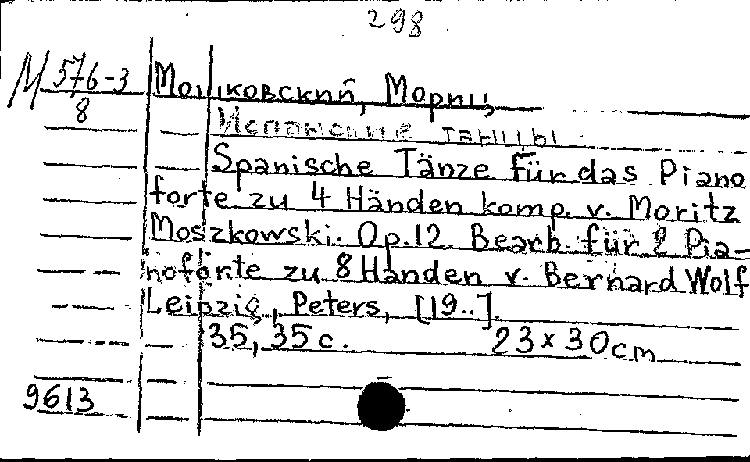 298
М 576-3
8
Мошковский, Мориц
Испанские танцы
Spanische Tänze für das Piano
forte zu 4 Händen komp. v. Moritz
Moszkowski. Op.12. Bearb. für 2 Pia-
noforte zu 8 Händen v. Bernard Wolf
Leipzig, Peters, [19..].
35, 35 c. 23 x 30 cm
9613